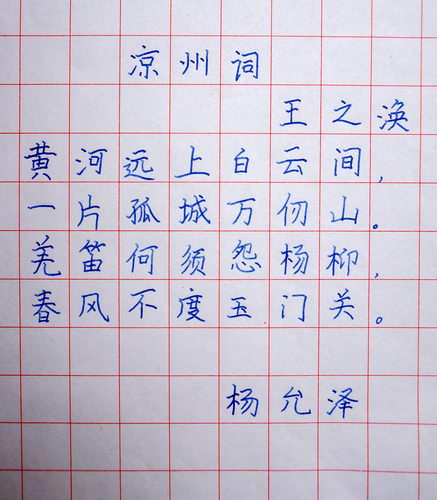 凉州词
王之涣
黄河远上白云间，
一片孤城万仞山。
羌笛何须怨杨柳，
春风不度玉门关。
杨允泽